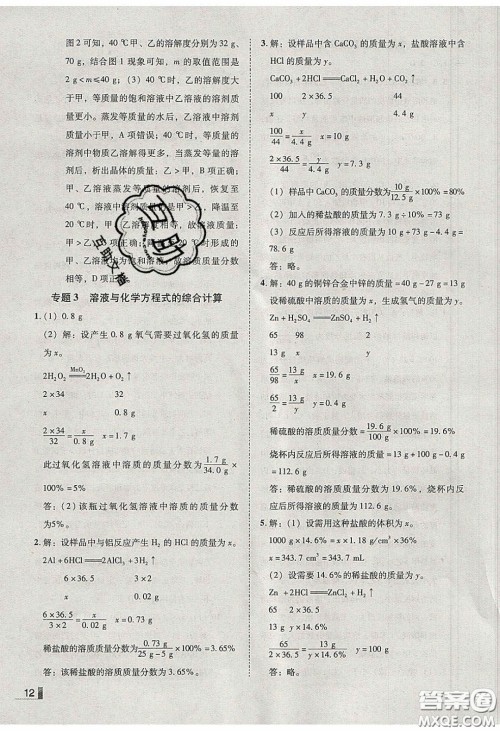 图2可知，40 ℃甲、乙的溶解度分别为32 g、
70 g，结合图1现象可知，m的取值范围是
2 g<m≤40 g；（3）40 ℃时，乙的溶解度大
于甲，等质量的饱和溶液中乙溶液的溶剂质
量更小。蒸发等质量的水后，乙溶液中溶剂
质量小于甲，A项错误；40 ℃时，等质量的溶
剂中溶质乙溶解得更多，当蒸发等量的溶
剂后，析出晶体的质量：乙>甲，B项正确；
甲、乙溶液蒸发等质量的溶剂后，恢复至
40 ℃时溶液质量仍是甲>乙，降温至
20 ℃时
20 ℃
专题3 溶液与化学方程式的综合计算
1.（1）0.8 g
（2）解：设产生0.8 g氧气需要过氧化氢的质量
为x。
2H₂O₂ =MnO₂= 2H₂O + O₂↑
2×34 32
x 0.8 g
2×34/32 = x/0.8 g x=1.7 g
此过氧化氢溶液中溶质的质量分数为 1.7 g/34.0 g ×
100%=5%
答：（2）该瓶过氧化氢溶液中溶质的质量分数
为5%。
2. 解：设样品中与铝反应产生H₂的HCl的质量为x。
2Al+6HCl══2AlCl₃+3H₂↑
6×36.5 3×2
x 0.02 g
6×36.5/3×2 = x/0.02 g x=0.73 g
稀盐酸的溶质质量分数为 0.73 g/25 g-5 g ×100%=3.65%
答：该稀盐酸的溶质质量分数为3.65%。
12
3. 解：设样品中含CaCO₃的质量为x，盐酸溶液中含
HCl的质量为y。
CaCO₃+2HCl══CaCl₂+H₂O+CO₂↑
100 2×36.5 44
x y 4.4 g
100/44 = x/4.4 g x=10 g
2×36.5/44 = y/4.4 g y=7.3 g
（1）样品中CaCO₃的质量分数为 10 g/12.5 g ×100%=80%
（2）加入的稀盐酸的质量=7.3 g÷10%=73 g
（3）反应后所得溶液的质量=10 g+73 g-4.4 g=
78.6 g
答：略。
4. 解：40 g的铜锌合金中锌的质量=40 g-27 g=13 g
设稀硫酸中的溶质质量为x，生成氢气的质量为y。
Zn+H₂SO₄══ZnSO₄+H₂↑
65 98 2
13 g x y
65/98 = 13 g/x x=19.6 g
65/2 = 13 g/y y=0.4 g
稀硫酸的溶质质量分数= 19.6 g/100 g ×100%=19.6%
烧杯内反应后所得溶液的质量=13 g+100 g-0.4 g
=112.6 g
答：稀硫酸的溶质质量分数为19.6%，烧杯内反
应后所得溶液的质量为112.6 g。
5. 解：（1）设需用这种盐酸的体积为x。
1000 g×14.6%=x×1.149 g/cm³×37%
x=343.7 cm³=343.7 mL
（2）设需要14.6%的稀盐酸的质量为y。
Zn + 2HCl══ZnCl₂+H₂↑
65 2×36.5 2
y×14.6% 0.2 g
答：略。
答案圈
MXQE.COM